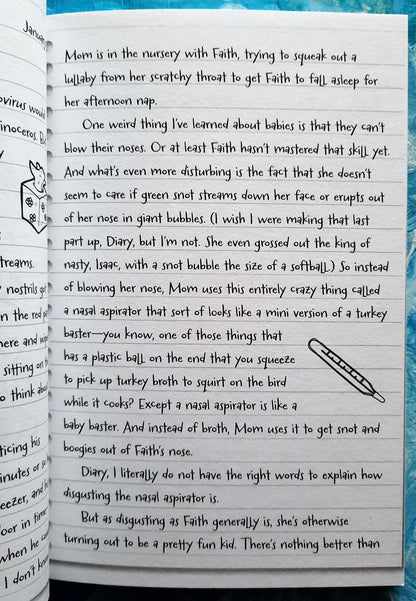 Januar
ovirus would
inoceros. Bu
y
s
treams.
y nostrils ge
n the red pe
here and wipe
sitting on th
o think abou
ticing his
inutes or so
eezer, and h
oor in time
when he co
I don't know
Mom is in the nursery with Faith, trying to squeak out a
lullaby from her scratchy throat to get Faith to fall asleep for
her afternoon nap.
One weird thing I've learned about babies is that they can't
blow their noses. Or at least Faith hasn't mastered that skill yet.
And what's even more disturbing is the fact that she doesn't
seem to care if green snot streams down her face or erupts out
of her nose in giant bubbles. (I wish I were making that last
part up, Diary, but I'm not. She even grossed out the king of
nasty, Isaac, with a snot bubble the size of a softball.) So instead
of blowing her nose, Mom uses this entirely crazy thing called
a nasal aspirator that sort of looks like a mini version of a turkey
baster—you know, one of those things that
has a plastic ball on the end that you squeeze
to pick up turkey broth to squirt on the bird
while it cooks? Except a nasal aspirator is like a
baby baster. And instead of broth, Mom uses it to get snot and
boogies out of Faith's nose.
Diary, I literally do not have the right words to explain how
disgusting the nasal aspirator is.
But as disgusting as Faith generally is, she's otherwise
turning out to be a pretty fun kid. There's nothing better than